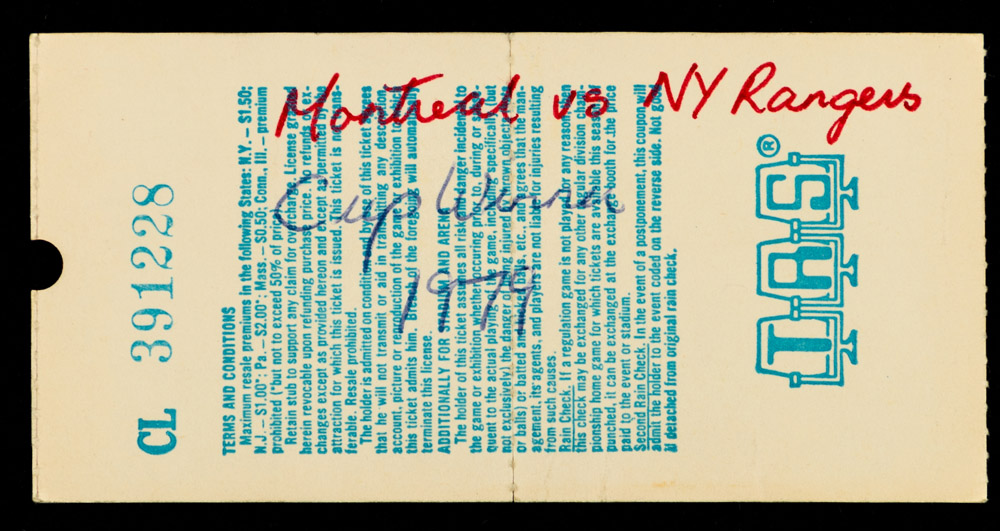 Montreal vs NY Rangers
Cup Winner
1979
CL 391228
TERMS AND CONDITIONS
Maximum resale premiums in the following States: N.Y. – $1.50;
N.J. – $1.00*; Pa. – $2.00*; Mass. – $0.50; Conn., Ill. – premium
prohibited (*but not to exceed 50% of price).
Retain stub to support any claim for or purchase. License
herein revocable upon refunding purchase price. No refunds
changes except as provided hereon and except as permitted by the
attraction for which this ticket is issued. This ticket is not
ferable. Resale prohibited.
The holder is admitted on condition, and by use of this ticket agrees
that he will not transmit or aid in transmitting any description,
account, picture or reproduction of the game or exhibition to which
this ticket admits him. Breach of the foregoing will automatically
terminate this license.
ADDITIONALLY FOR STADIUM AND ARENA
The holder of this ticket assumes all risk and danger incidental to
the game or exhibition whether occuring prior to, during or
quent to the actual playing of the game, including specifically (but
not exclusively) the danger of being injured by thrown objects
or balls) or batted and balls, etc., and agrees that the man-
agement, its agents, and players are not liable for injuries resulting
from such causes.
Rain Check. If a regulation game is not played for any reason
this check may be exchanged for any other regular division cham-
pionship home game for which tickets are available this season
punched, it can be exchanged at the exchange booth for the price
paid to the event or stadium.
Second Rain Check. In the event of a postponement, this coupon will
admit the holder to the event coded on the reverse side. Not good
if detached from original rain check.
TRS®